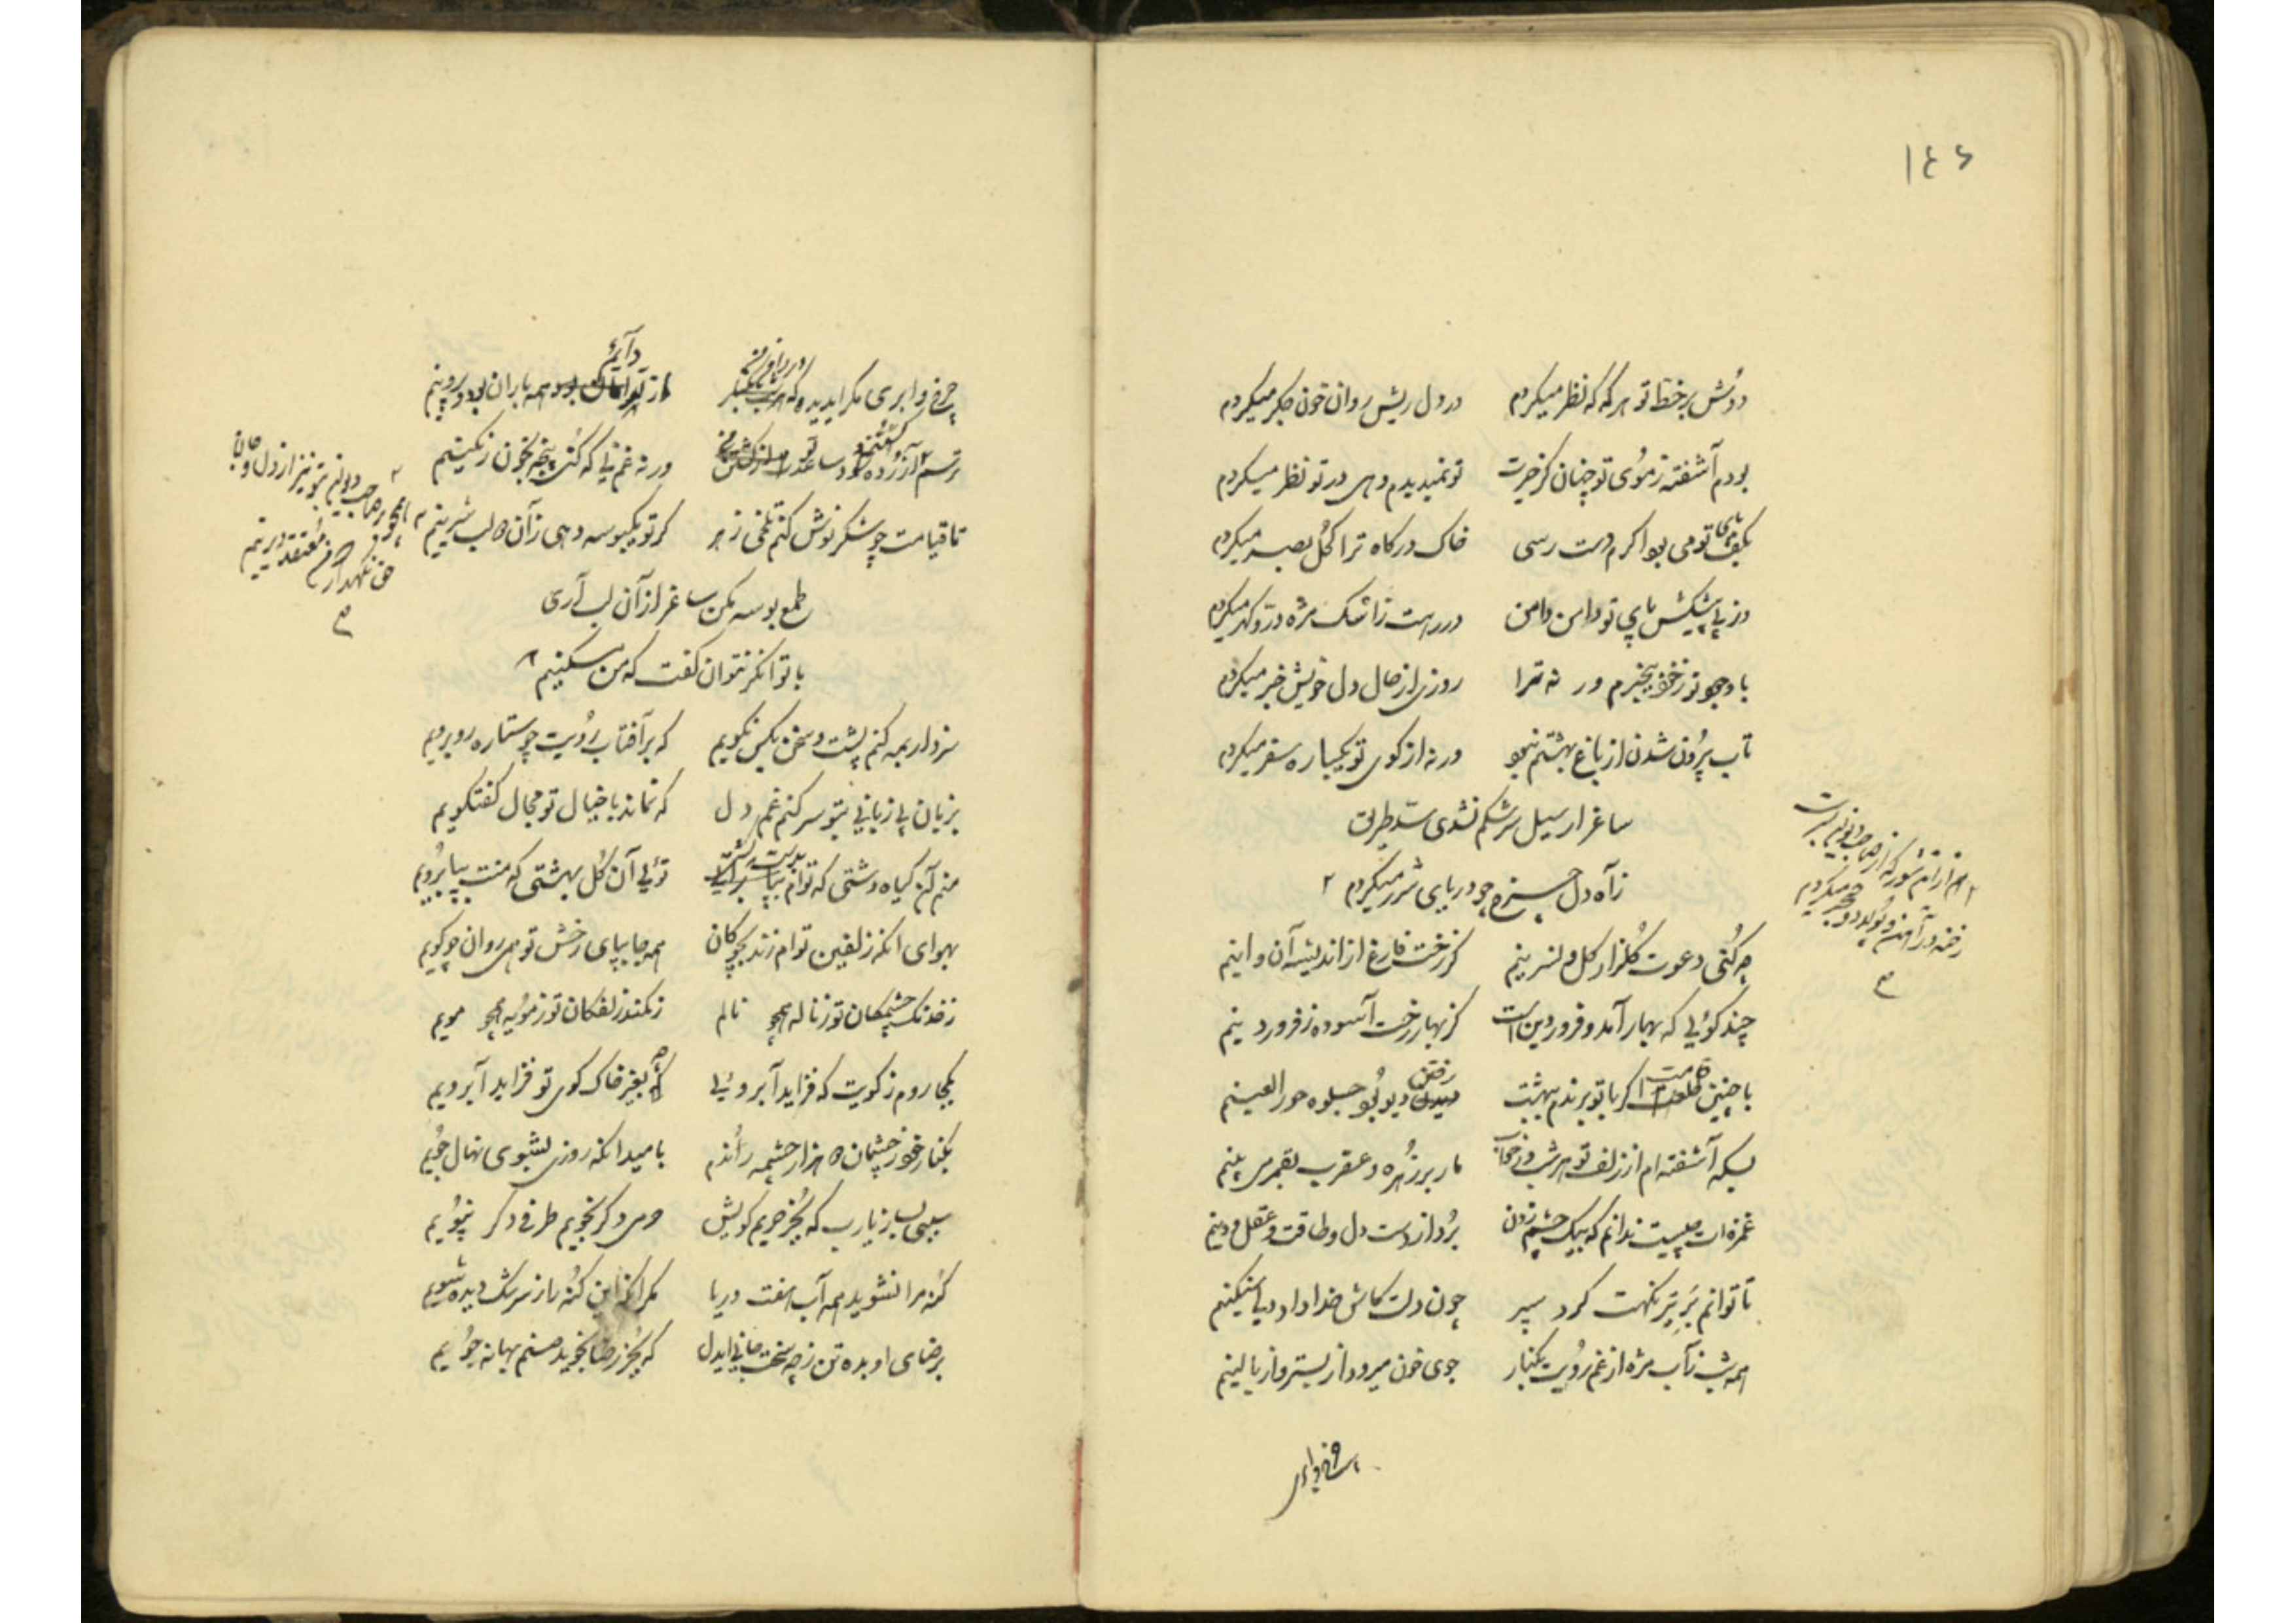 ۱۴۶
دوش بر خط تو هر گه که نظر میکردم در دل ریش روان خون جگر میکردم
بودم آشفته ز موی تو چنان کز حیرت تو نمیدیدم و هی در تو نظر میکردم
بکف پای تو می بود اگرم دست رسی خاک درگاه ترا کحل بصر میکردم
وز پی پیشکش پای تو دامن دامن در رهت ز اشک مژه در و گهر میکردم
با وجود تو ز خود بیخبرم ور نه ترا روزی از حال دل خویش خبر میکردم
تاب بیرون شدن از باغ بهشتم نبود ورنه از کوی تو یکباره سفر میکردم
ساغر ار سیل سرشکم نشدی سد طریق
ز آه دل چرخ چو دریای شرر میکردم ۲
۲ هم از آتش شور که از صاحب دیوانم نیست
رخنه در آهن و پولاد و حجر میکردم
چه کنی دعوت گلزار گل و نسرینم کز رخت فارغ از اندیشه آن و اینم
چند گوئی که بهار آمد و فروردین است کز بهار رخت آسوده ز فروردینم
با چنین قامت اگر با تو برندم ببهشت رفتن دیو بود جلوه حور العینم
بسکه آشفته ام از زلف تو هر شب در خواب مار بر زهره و عقرب بقمر می بینم
غمزه ات چیست ندانم که بیک چشم زدن برد از دست دل و طاقت و عقل و دینم
تا توانم بر تیر نگهت کرد سپر چون دلت کاش خدا داد دلی سنگینم
همه شب ز آب مژه از غم رویت بکنار جوی خون میرود از بستر و از بالینم
چرخ و ابری مگر ای دیده که در دامن من دائم از تو همه باران بود و پروینم
ترسم آزرده شود ساعدت از کشتن من ور نه غم نی که کنی پنجه بخون رنگینم
تا قیامت چو شکر نوش کنم تلخی زهر گر تو یکبوسه دهی زآن لب شیرینم ۲
۲ همچو بر صاحب دیوانم بتو نیز از دل و جان
حق نگهدار معتقد دیرینم
طمع بوسه مکن ساغر از آن لب آری
با توانگر نتوان گفت که من مسکینم ۲
سزد ار بمه کنم پشت و سخن بکس نگویم که بر آفتاب رویت چو ستاره روبرویم
بزبان بی زبانی بتو سر کنم غم دل که نماند با خیال تو مجال گفتگویم
منم آن گیاه دشتی که توام بپا توئی آن گل بهشتی که منت بپا برویم
بهوای آنکه زلفین توام زند بچوگان همه جا بپای رخش تو همی روان چو گویم
ز خدنگ چشمکان تو ز ناله همچو نالم ز کمند زلفکان تو ز مویه همچو مویم
بکجا روم ز کویت که فزاید آبروئی که بغیر خاک کوی تو فزاید آبرویم
بکنار خود ز چشمان هزار چشمه راندم بامید آنکه روزی بشوی نهال جویم
سببی بساز یارب که بجز حریم کویش حرمی دگر نجویم طرفی دگر نپویم
گنه مرا نشوید همه آب هفت دریا مگر آنکه این گنه را ز سرشک دیده شویم
برضای او بده تن ز چه سخت جانی ایدل که بجز رضا نجوید صنم بهانه جویم